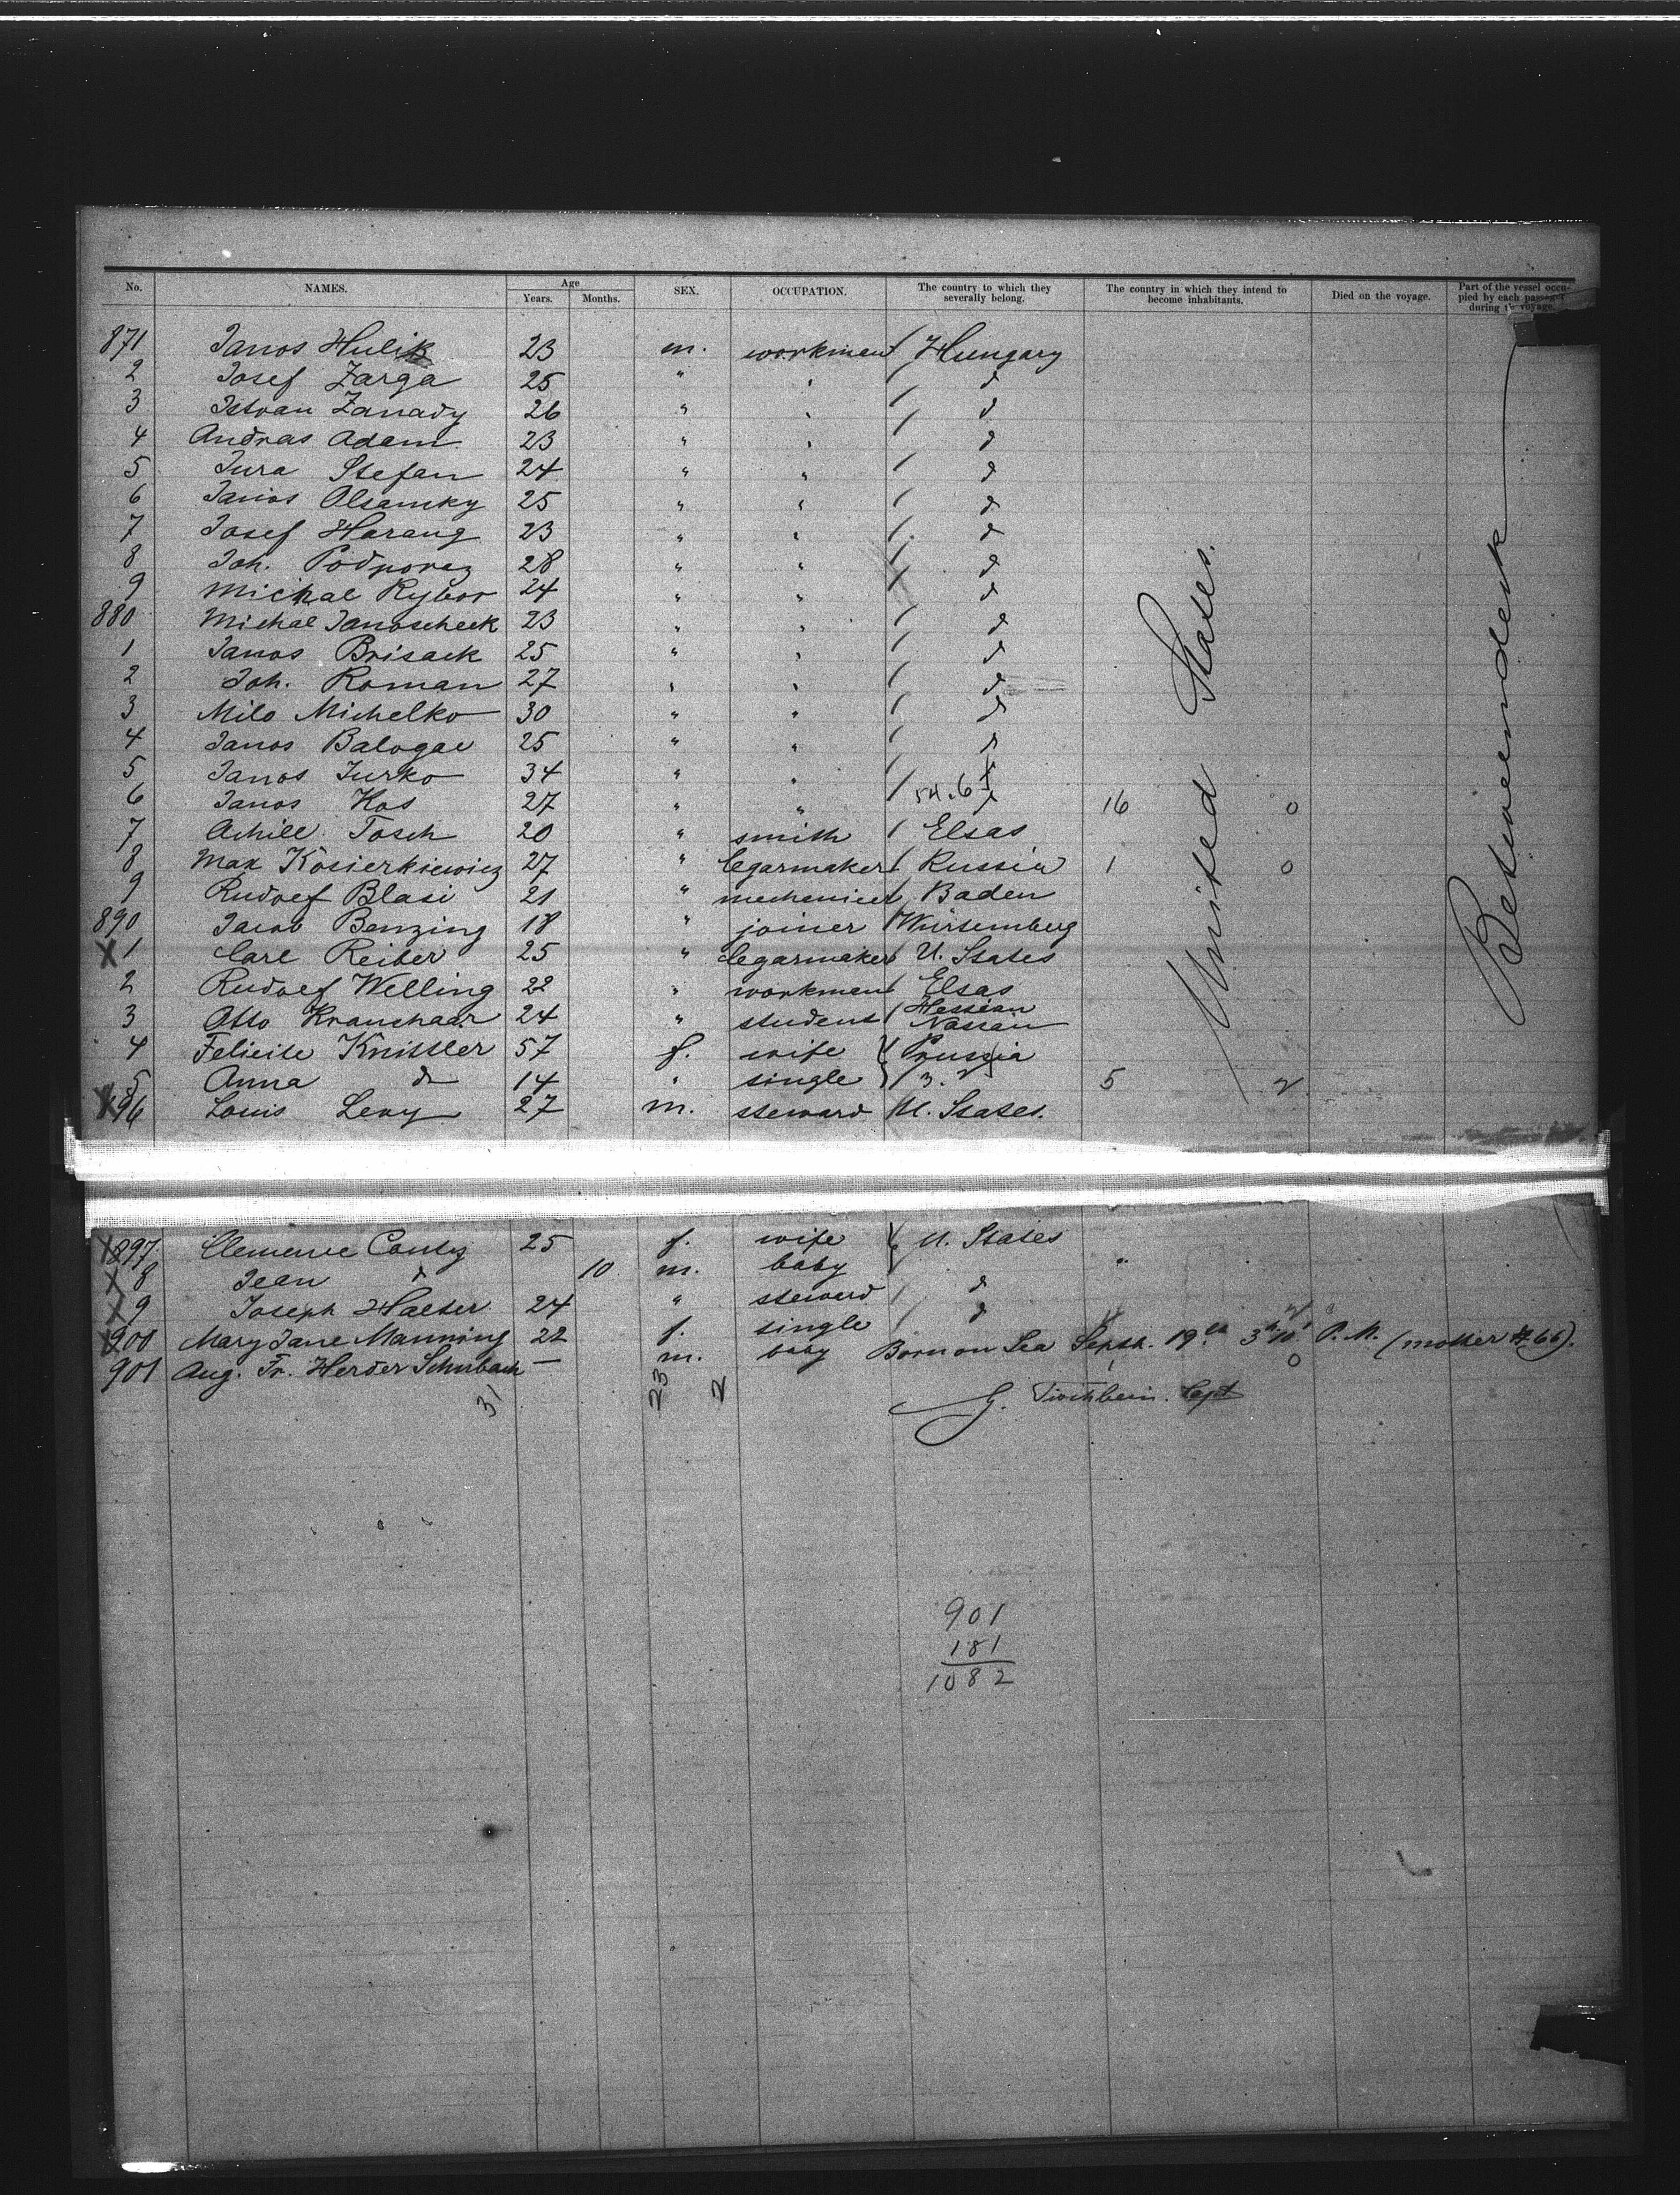 No. NAMES. Age Years. Months. SEX. OCCUPATION. The country to which they severally belong. The country in which they intend to become inhabitants. Died on the voyage. Part of the vessel occupied by each passenger during the voyage.
871 Janos Hulik 23 m. workman / Hungary
2 Josef Zarga 25 " " / d
3 Istvan Zanady 26 " " / d
4 Andras Adam 23 " " / d
5 Jura Stefan 24 " " / d
6 Janos Olsamky 25 " " / d
7 Josef Harang 23 " " / d
8 Joh. Podporez 28 " " / d
9 Michal Rybor 24 " " / d
880 Michal Janoscheck 23 " " / d
1 Janos Brisack 25 " " / d
2 Joh. Roman 27 " " / d
3 Milo Michelko 30 " " / d
4 Janos 25 " " / d
5 Janos Jurko 34 " " / d
6 Janos Kos 27 " " / d 16 0
7 Achill Tosch 20 " smith / Elsas
8 Max Kosierkiewicz 27 " Cegarmaker / Russia 1 0
9 Rudolf Blasi 21 " / Baden
890 Jacob Benzing 18 " joiner / Würtemberg
X 1 Carl Reiber 25 " Cegarmaker U. States
2 Rudolf Welling 22 " workman Elsas
3 Otto Kranshaar 24 " student / Hessian Nassau
4 Felicite Knittler 57 f. wife Prussia
5 Anna do 14 " single / 3. 2 5 2
X 896 Louis Levy 27 m. steward / U. States.
United States.
Betweendeck
X 897 Clemence 25 f. wife U. States
X 8 Jean d 10 m. baby "
X 9 Joseph Halter 24 " steward / d
900 Mary Jane Manning 22 f. single / d 2
901 Aug. Fr. Herder Schubach — m. baby Born on Sea Septb. 19th 3h 10' P. M. (mother # 66).
0
31 23 2
Capt
901
181
1082